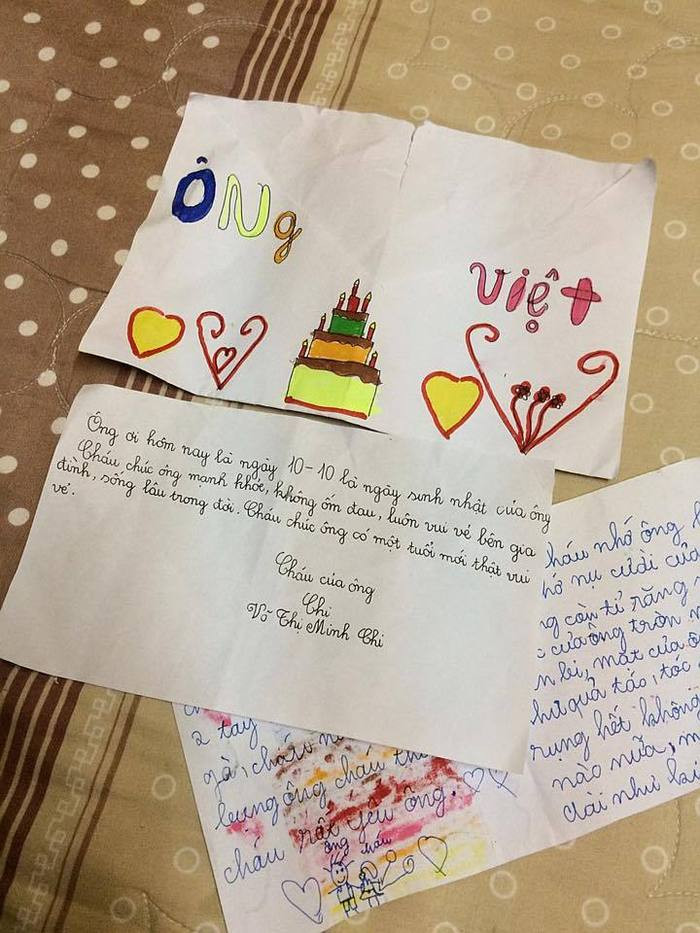 Ông
Việt
Ông ơi hôm nay là ngày 10-10 là ngày sinh nhật của ông
Cháu chúc ông mạnh khỏe, không ốm đau, luôn vui vẻ bên gia
đình, sống lâu trong đời. Cháu chúc ông có một tuổi mới thật vui
vẻ.
Cháu của ông
Chi
Võ Thị Minh Chi
cháu nhớ ông
nhớ nụ cười của
còn tí răng
của ông tròn
bi, mắt của
như quả táo, tóc
rụng hết không
nào nữa, m
dài như
2 tay
gà, cháu
bụng ông cháu
cháu rất yêu ông.
ông cháu